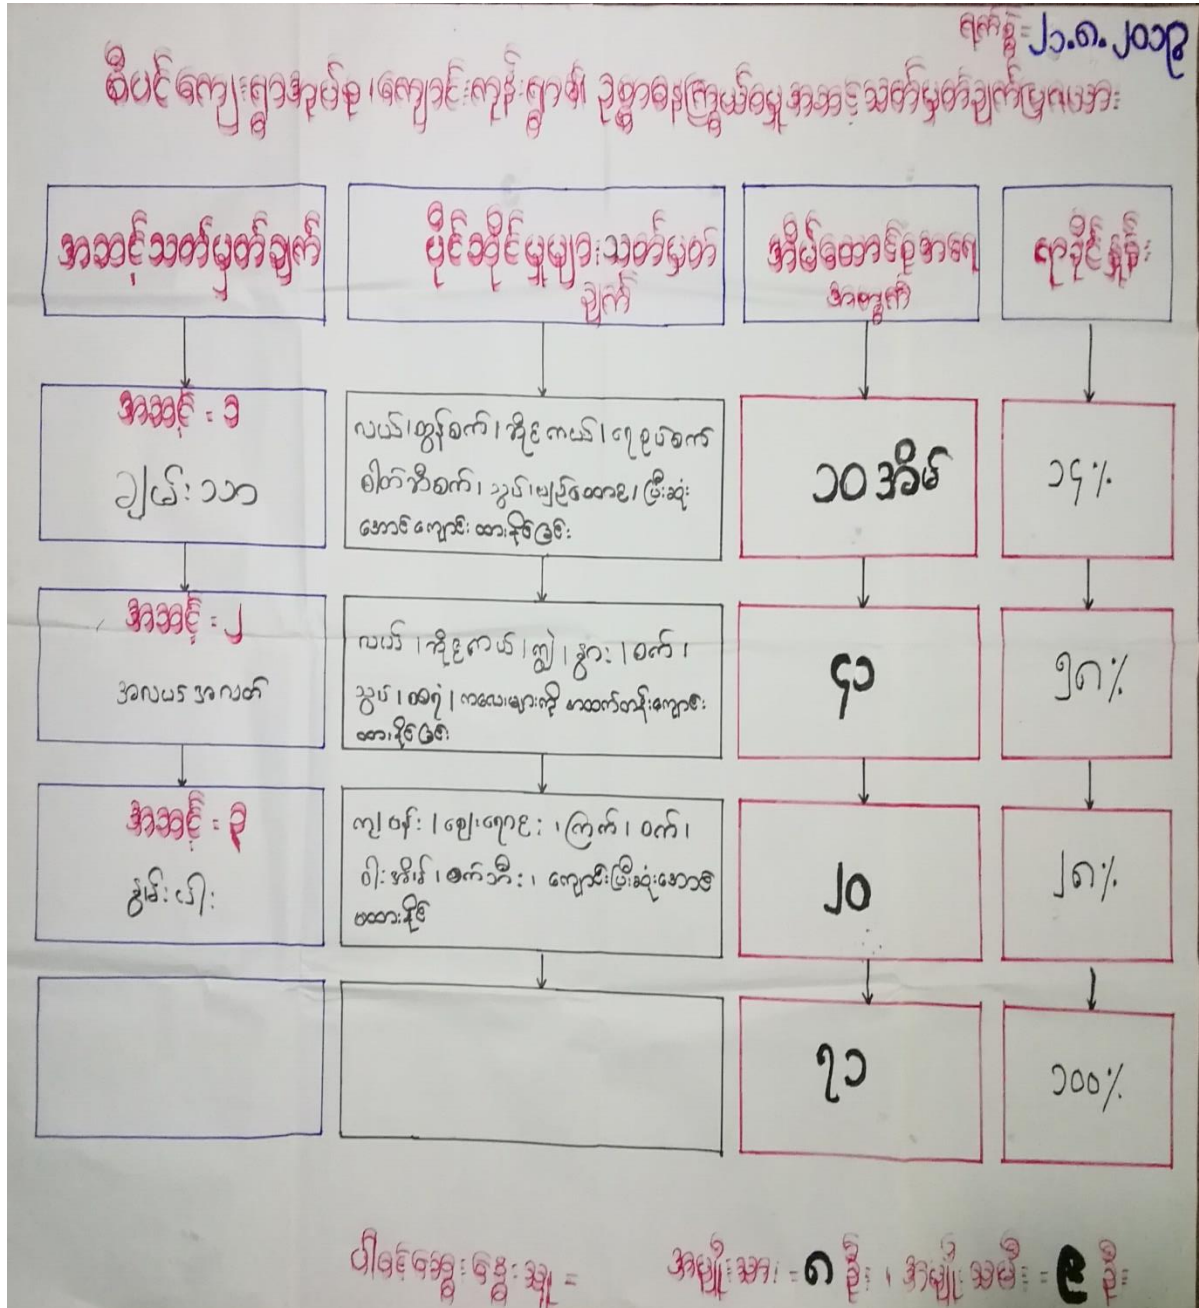 ရက်စွဲ = ၂၁.၈.၂၀၁၉
စီပင်ကျေးရွာအုပ်စု၊ ကျောင်းကုန်းရွာ၏ ဥစ္စာဓနကြွယ်ဝမှုအဆင့်သတ်မှတ်ချက်ပြဇယား
အဆင့်သတ်မှတ်ချက်
ပိုင်ဆိုင်မှုများသတ်မှတ်
ချက်
အိမ်ထောင်စုအရေ
အတွက်
ရာခိုင်နှုန်း
အဆင့် = ၁
ချမ်းသာ
လယ်၊ထွန်စက်၊ ဆိုင်ကယ်၊ ရေစုပ်စက်
ဓါတ်ဆီစက်၊ သွပ်၊ပျဉ်ထောင်၊ ပြီးဆုံး
အောင်ကျောင်းထားနိုင်ခြင်း
၁၀ အိမ်
၁၄%
အဆင့် = ၂
အလယ်အလတ်
လယ် ၊ ဆိုင်ကယ် ၊ ကျွဲ ၊ နွား ၊ ဝက် ၊
သွပ် ၊ ထရံ ၊ ကလေးများကို အထက်တန်းကျောင်း
ထားနိုင်ခြင်း
၄၁
၅၈%
အဆင့် = ၃
နွမ်းပါး
ကျပန်း ၊ ဈေးရောင်း ၊ ကြက် ၊ ဝက် ၊
ဝါးအိမ် ၊ စက်ဘီး ၊ ကျောင်းပြီးဆုံးအောင်
မထားနိုင်
၂၀
၂၈%
၇၁
၁၀၀%
ပါဝင်ဆွေးနွေးသူ = အမျိုးသား - ၈ ဦး ၊ အမျိုးသမီး - ၉ ဦး